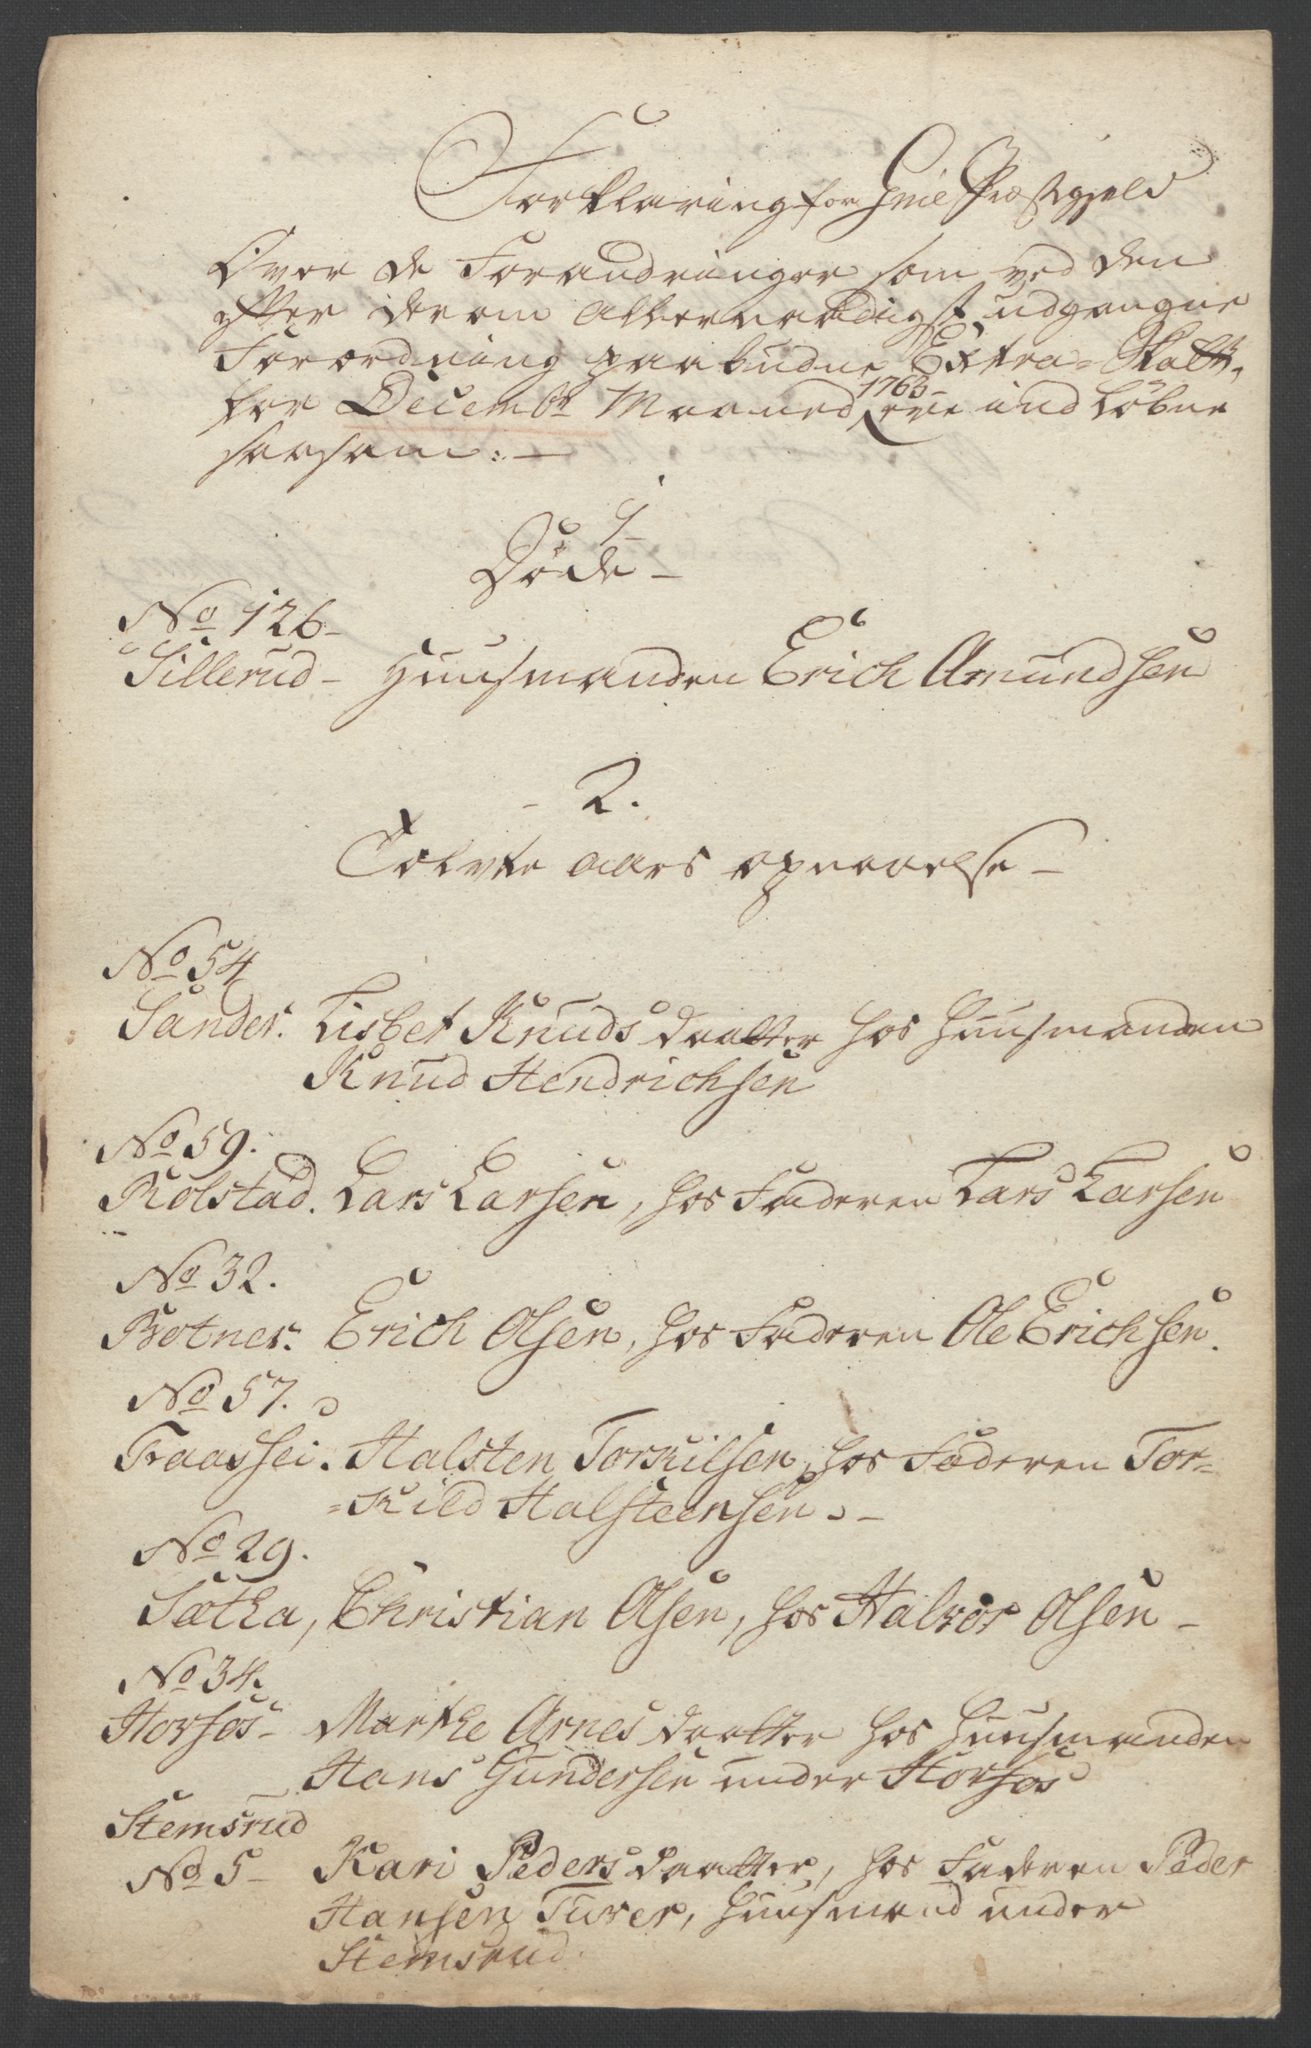 Forklaring for Grue Præstegjeld
Over de Forandringer som ved den
efter derom allernaadigst udgangne
Forordning paabudne Extra-Skatt,
for Decembr Maaned 1763 ere indløbne
saasom:
1
Døde
No 126
Sillerud Huusmanden Erich Amundsen
2.
Tolvte aars opnaaelse
No 54
Sander. Lisbet Knuds daatter hos Huusmanden
Knud Hendrichsen
No 59.
Rolstad. Lars Larsen, hos Faderen Lars Larsen
No 32.
Botner. Erich Olsen, hos Faderen Ole Erichsen.
No 57.
Fraassei. Halsten Torkilsen, hos Faderen Tor-
=kild Halsteensen.
No 29.
Sætha, Christian Olsen, hos Halvor Olsen
No 34.
Horsøs Marthe Arnes daatter hos Huusmanden
Hans Gundersen under Horsøs
Stemsrud
No 5 Kari Peders daatter, hos Faderen Peder
Hansen Turer, Huusmand under
Stemsrud.